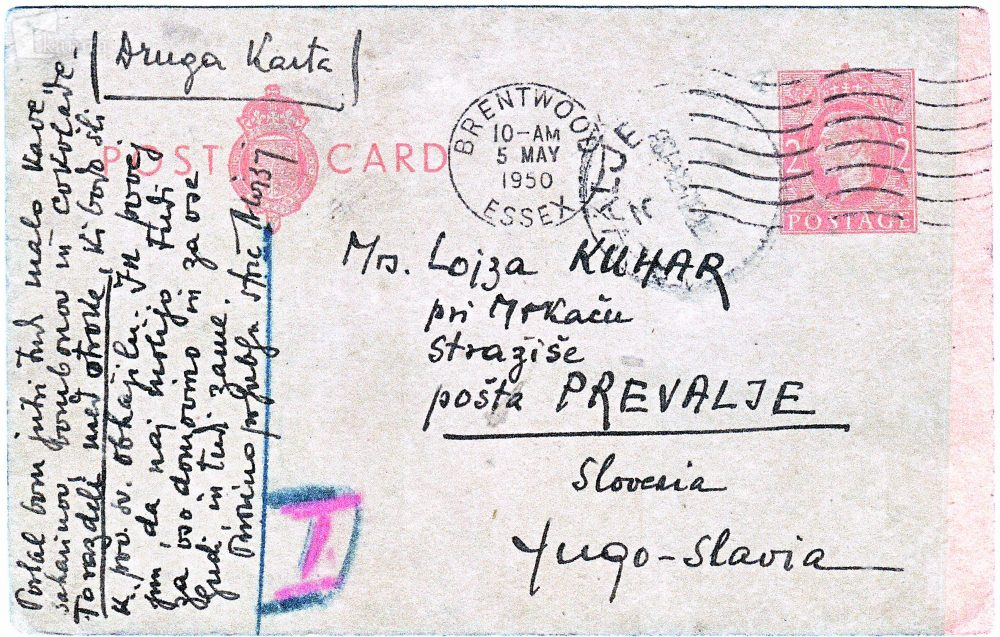 (Druga Karta)
POST CARD
BRENTWOOD
10-AM
5 MAY
1950
ESSEX
2 2
POSTAGE
Mrs. Lojza KUHAR
pri Mrkaču
Stražiše
pošta PREVALJE
Slovenia
Yugo-Slavia
I
Poslal bom jutri tud malo kave,
saharinov, bombonov in čokolade.-
To razdeli med otroke, ki bodo šli
k. prv. sv. obhajilu. In povej
jim, da naj molijo tudi
za vso domovino in za vse
ljudi in tudi zame.
stric Alojzij